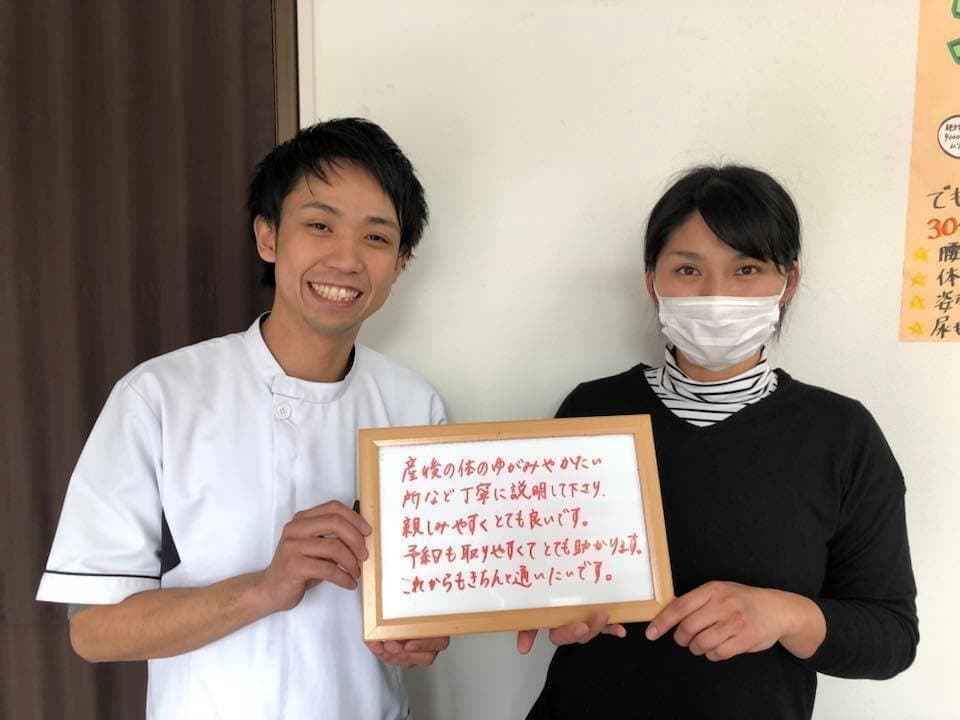 産後の体のゆがみやかたい
所など丁寧に説明して下さり、
親しみやすくとても良いです。
予約も取りやすくてとても助かります。
これからもきちんと通いたいです。
でも
30
腰
体
姿
尿も